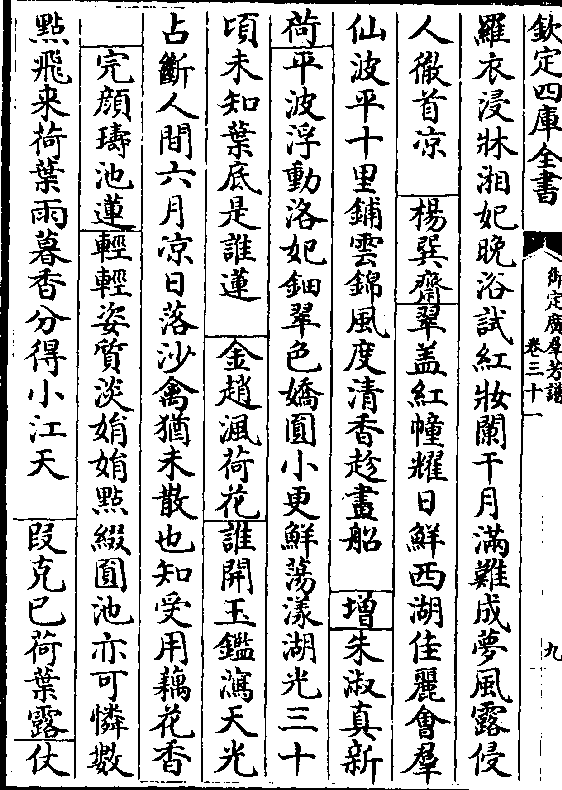 欽定四庫全書
御定廣羣芳譜
卷三十一
九
羅衣浸牀湘妃晚浴試紅妝闌干月滿難成夢風露侵
人徹首凉　楊巽齋翠盖紅幢耀日鮮西湖佳麗會羣
仙波平十里鋪雲錦風度清香趁畫船　增朱淑真新
荷平波浮動洛妃鈿翠色嬌圓小更鮮蕩漾湖光三十
頃未知葉底是誰蓮　金趙渢荷花誰開玉鑑瀉天光
占斷人間六月凉日落沙禽猶未散也知受用藕花香
完顔璹池蓮輕輕姿質淡娟娟點綴圓池亦可憐數
點飛来荷葉雨暮香分得小江天　段克已荷葉露仗